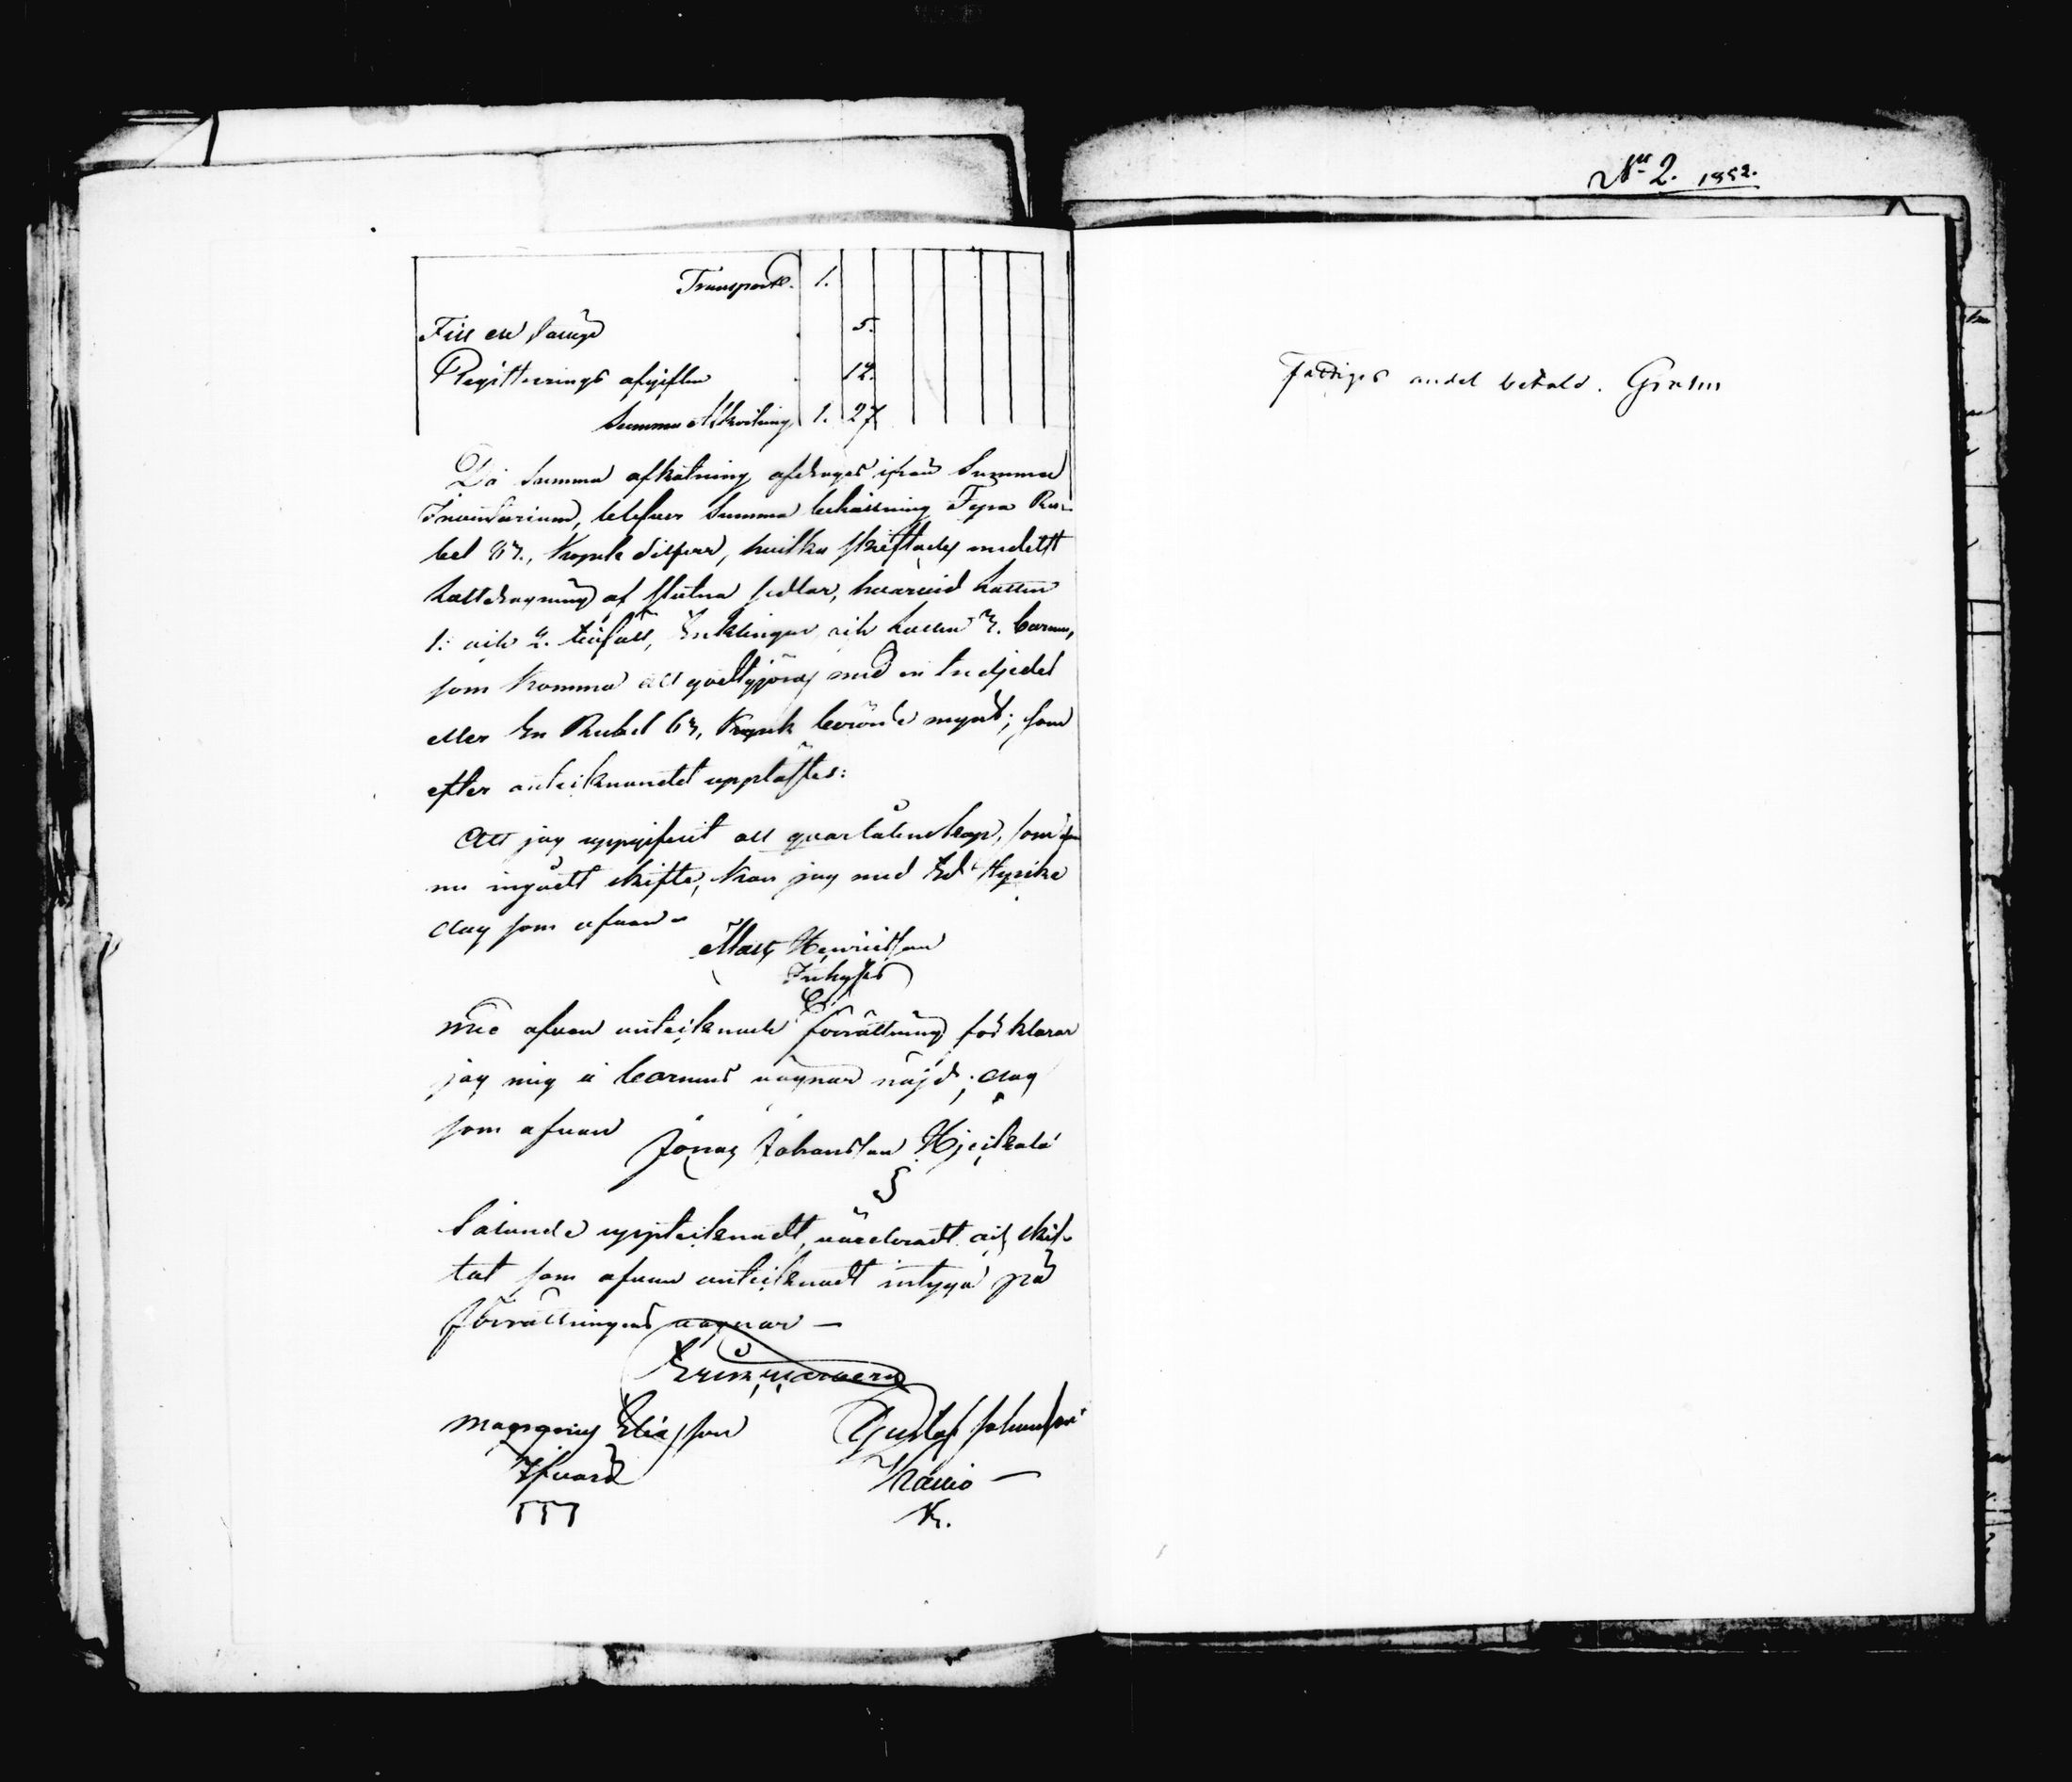 Transport. 1.
Till en 5.
Registrerings afgiften 12.
Summa Afkortning 1. 27
Då Summa afkortning afdrages ifrån Summa
Inventarium, blefver Summa behållning Fyra Ru-
bel 87, Kopek Silfver, hvilka skiftades medelst
lottdragning af slutna sedlar, hvarvid lotten
1: och 2. tillföll, Enklingen och lotten 3. barnen,
som komma att godtgjöras med en tredjedel
eller En Rubel 63, Kopek berörde mynt; som
efter anteiknandet upplästes:
Att jag uppgifvit all qvarlåtenskap, som
nu ingått skifte, kan jag med Ed Styrika
dag som ofvan
Matts Henricsson
Med ofvan anteiknade förrättning för klarar
jag mig å barnens vägnar nöjd; dag
som ofvan
Jonas Johansson
Sålunde uppteiknadt, värderadt och skif-
tat som ofvan anteiknadt intyga på
förrättningens vägnar —
Magnus Eliasson
Gustaf Johansson
Ifvars
N. 2. 1852.
Fattiges andel betald.